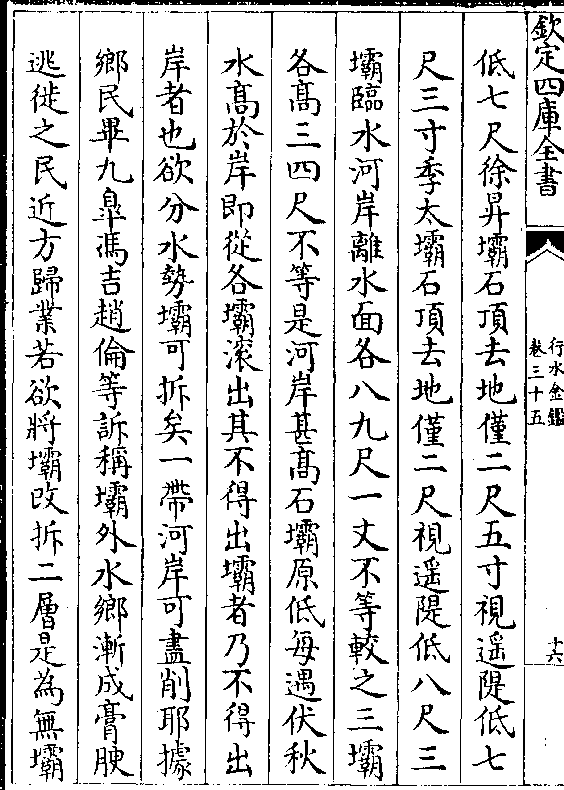 欽定四庫全書
行水金鑑
卷三十五
十六
低七尺徐昇壩石頂去地僅二尺五寸視遥隄低七
尺三寸季太壩石頂去地僅二尺視遥隄低八尺三
壩臨水河岸離水面各八九尺一丈不等較之三壩
各髙三四尺不等是河岸甚髙石壩原低每遇伏秋
水髙於岸即從各壩滚出其不得出壩者乃不得出
岸者也欲分水勢壩可拆矣一帶河岸可盡削耶據
鄉民畢九臯馮吉趙倫等訴稱壩外水鄉漸成膏腴
逃徙之民近方歸業若欲將壩改拆二層是為無壩